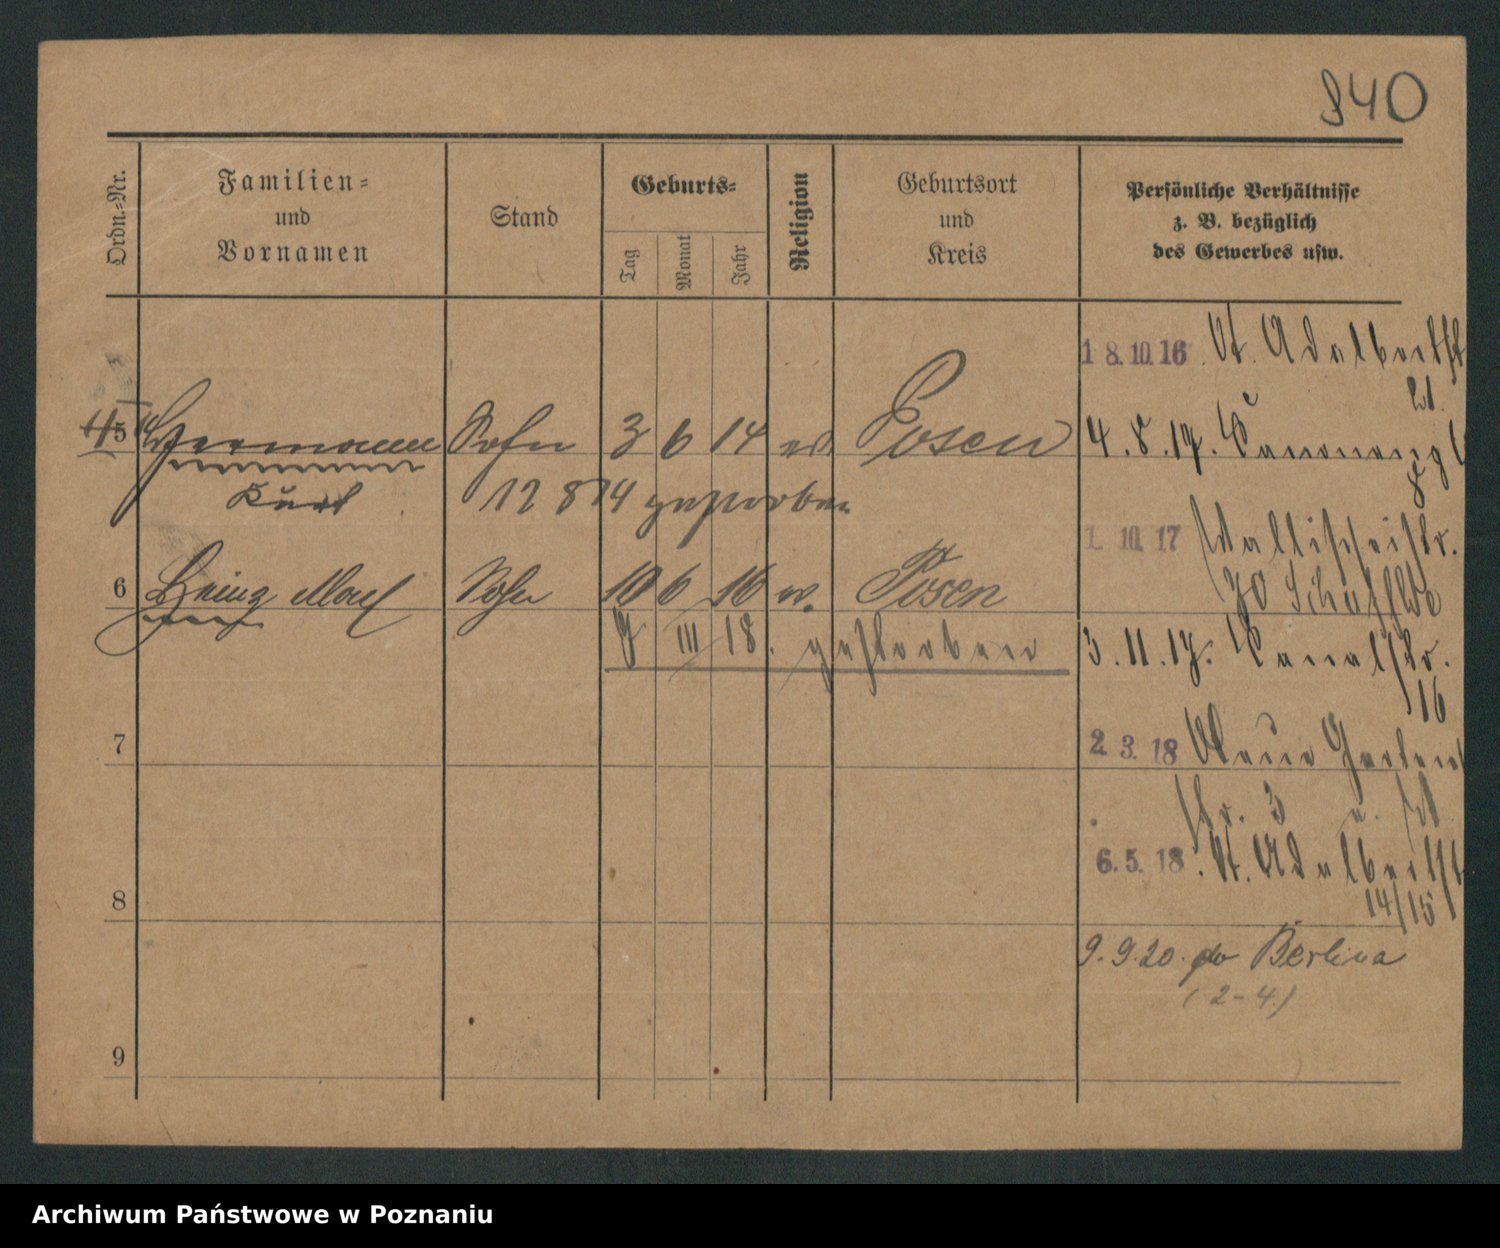 840
Ordn.-Nr.
Familien-
und
Vornamen
Stand
Geburts-
Tag
Monat
Jahr
Religion
Geburtsort
und
Kreis
Persönliche Verhältnisse
z. B. bezüglich
des Gewerbes usw.
18.10.16. St. Adalbertst
5 Hermann Sohn 3 6 14 ev. Posen
4.8.17.
Kurt 12 8 14 gestorben
1. 10. 17 Wallischeistr.
70
6 Heinz Max Sohn 10 6 16 ev. Posen
9 III 18. gestorben
3.11.17. Kanalstr.
16
7
2. 3. 18 Neue Garten
str. 3
6. 5. 18. St. Adalbertst
14/15
8
9.9.20. do Berlina
(2-4)
9
Archiwum Państwowe w Poznaniu